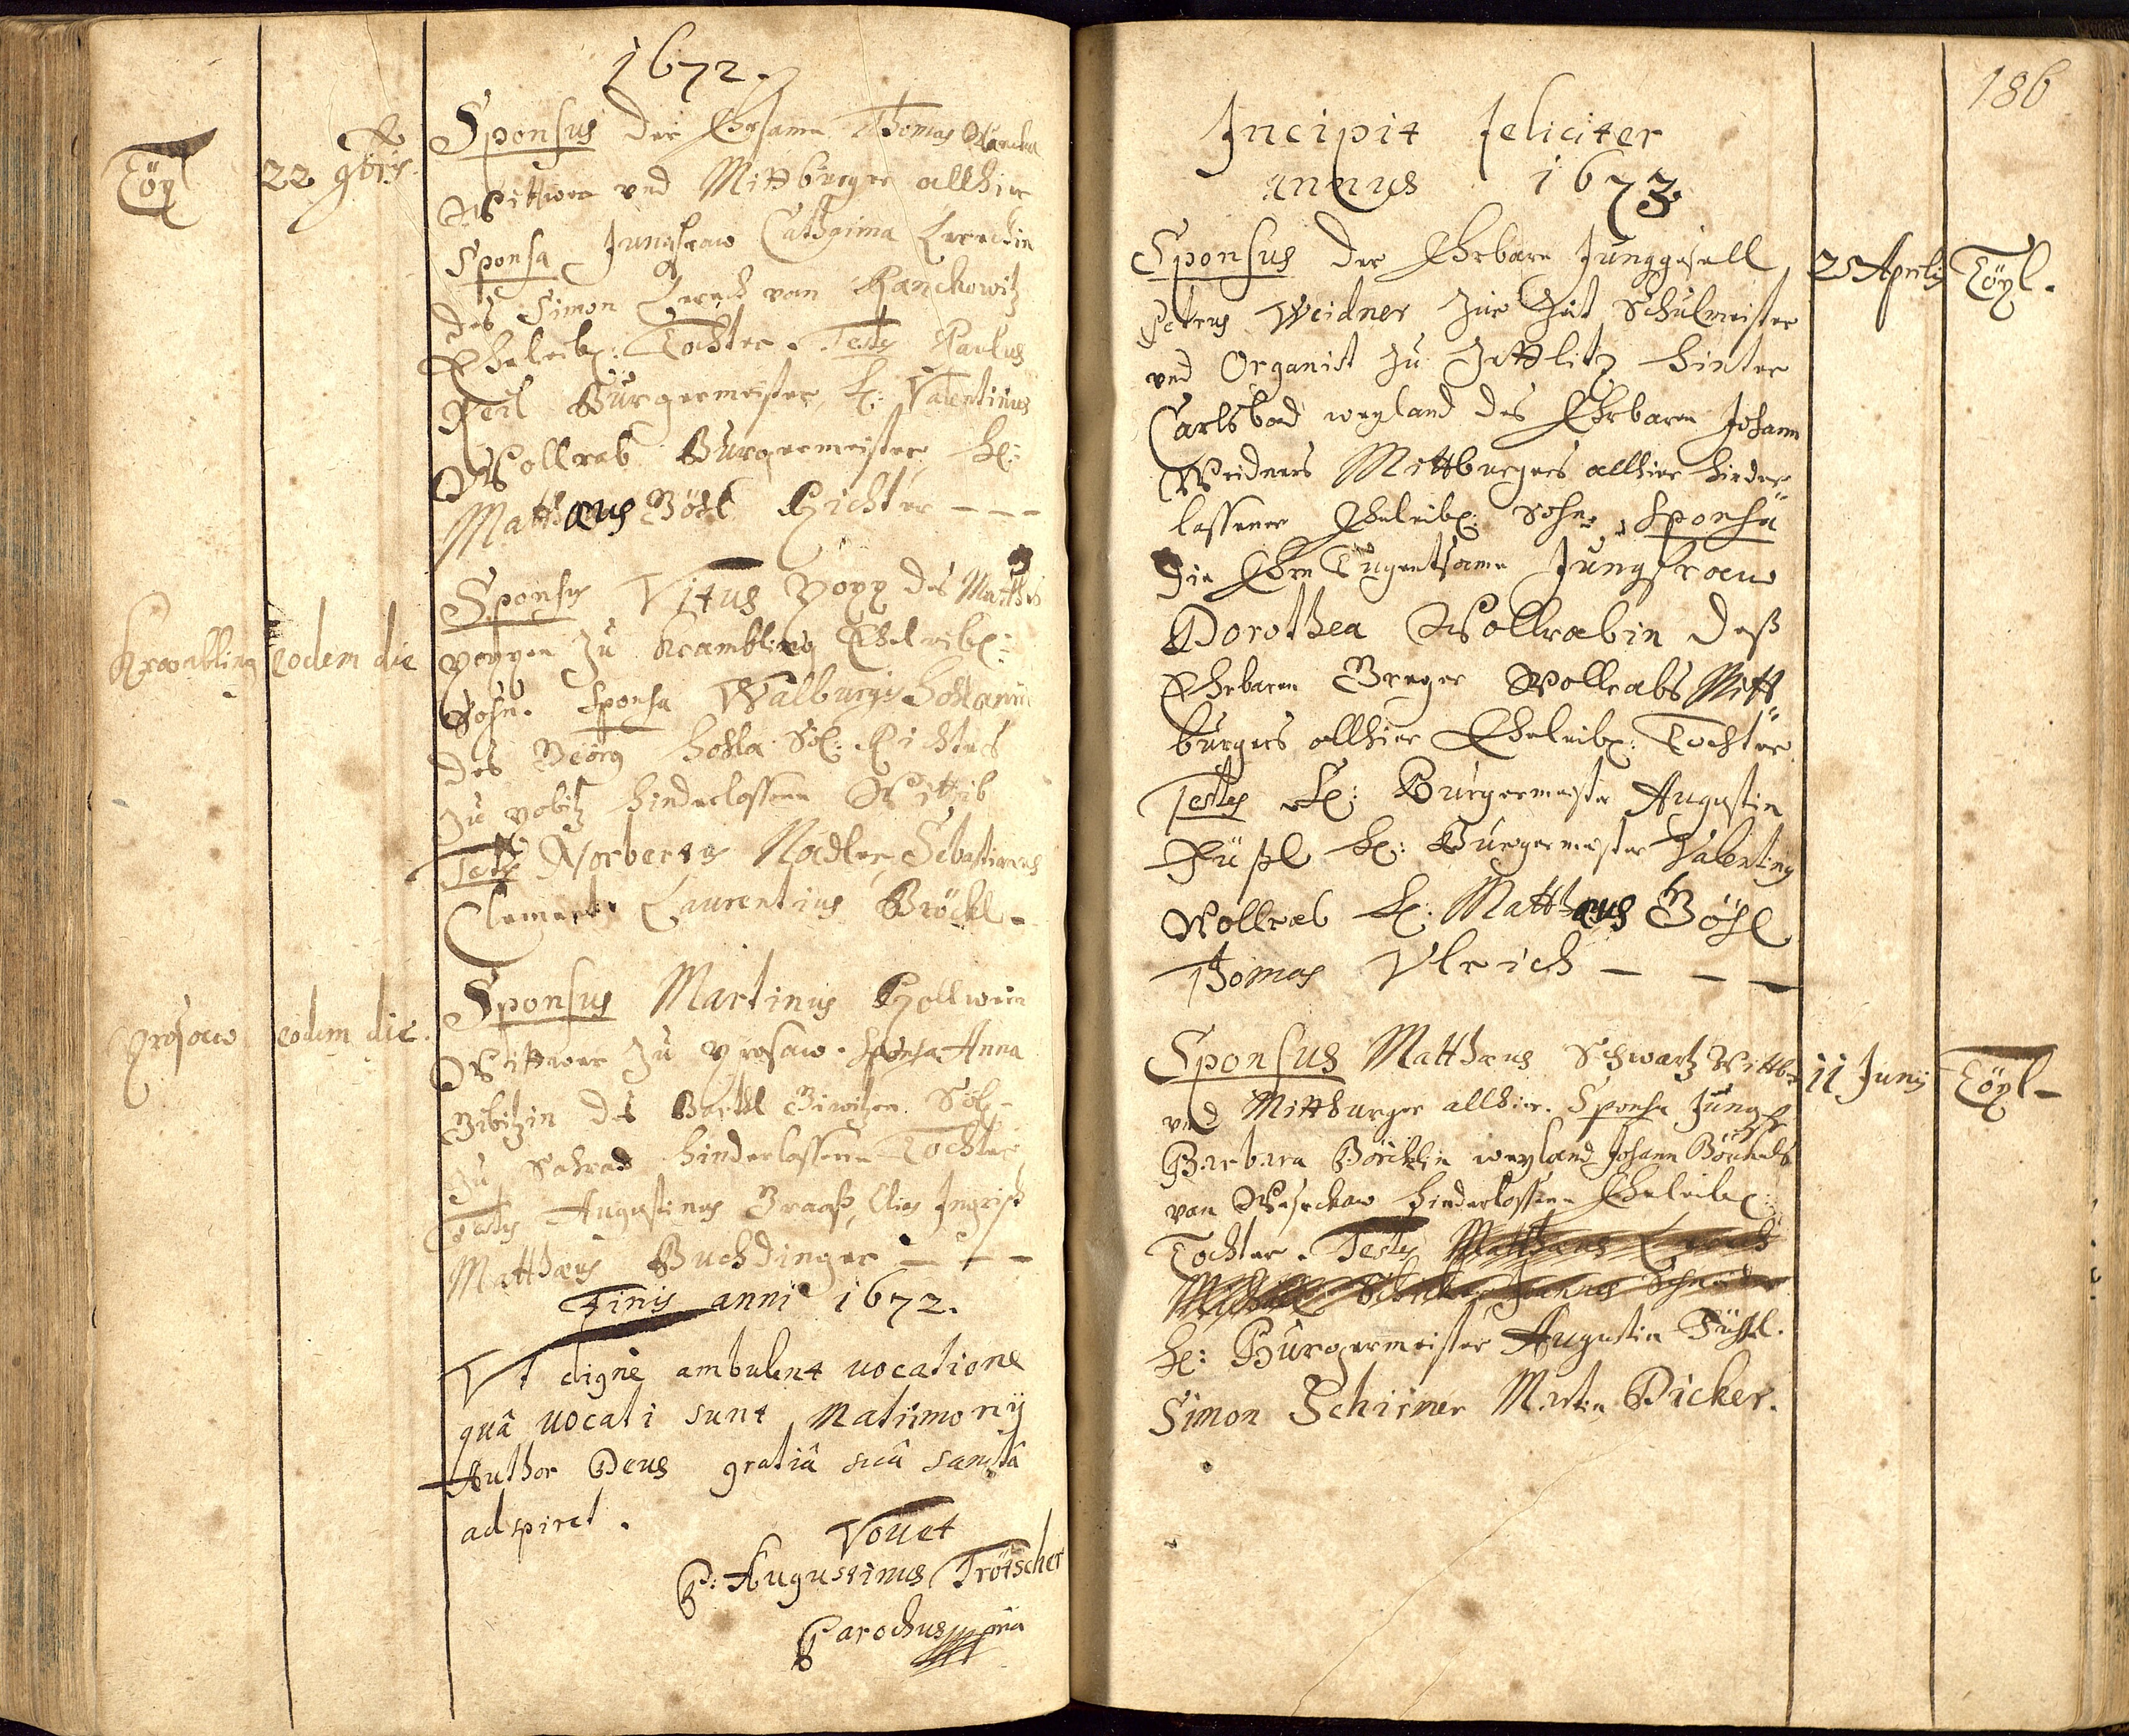 1672.
Töpl
22 9bris
Sponsus der Ehrsame Thomas
Wittwer vnd Mittburger allhier
Sponsa Jungfraw Catharina Lerchin
des Simon Lerch von Hanckowitz
Eheleibl: Tochter. Testes Paulus
Keil Bürgermeister, H: Valentinus
Wollrab Burgermeister H:
Matthæus Bösl Richter - - -
Krambling
eodem die
Sponsus Vitus Popp des Matthes
Poppen zu Krambling Eheleibl:
Sohn. Sponsa Walburgis
des Georg Sel: Richters
zu hinderlassene Wittib
Testes Norbertus Nadler, Sebastianus
Clement Laurentius Bröckl -
Prosaw
eodem die.
Sponsus Martinus Hollwein
Wittwer zu Prosaw. Sponsa Anna
des Bartl Sel:
zu hinderlassene Tochter
Testes Augustinus Braass, Elias
Matthæus Buchdinger - - -
Finis anni 1672.
Vt dignè ambulent uocatione
quâ uocati sunt Matrimonij
Author Deus gratiâ suâ sanctâ
adspiret.
Vouet
P: Augustinus Trötscher
Parochus mppria
186
Incipit feliciter
annus 1673.
Sponsus der Ehrbare Junggesell
25 Aprilis
Töpl.
Petrus Weidner zur Zeit Schulmeister
vnd Organist zu Zettlitz hinter
Carlsbad weyland des Ehrbaren Johann
Weidners Mittburgers allhier hinder
lassener Eheleibl: Sohn, Sponsa
die Ehrn Tugentsame Jungfraw
Dorothea Wollrabin deß
Ehrbaren Greger Wollrabs Mitt
burgers allhier Eheleibl: Tochter.
Testes H: Burgermeister Augustin
Füssl H: Burgermeister Valentinus
Wollrab H: Matthæus Bösl
Thomas Vlrich - - -
Sponsus Matthæus Schwartz Wittber
11 Junij
Töpl -
vnd Mittburger allhier. Sponsa Jungfr
Barbara Böncklin weyland Johann Bönckels
von hinderlassene Eheleibl:
Tochter. Testes Matthæus Lerch
H: Burgermeister Augustin Füssl.
Simon Schirmer Martin Picker.